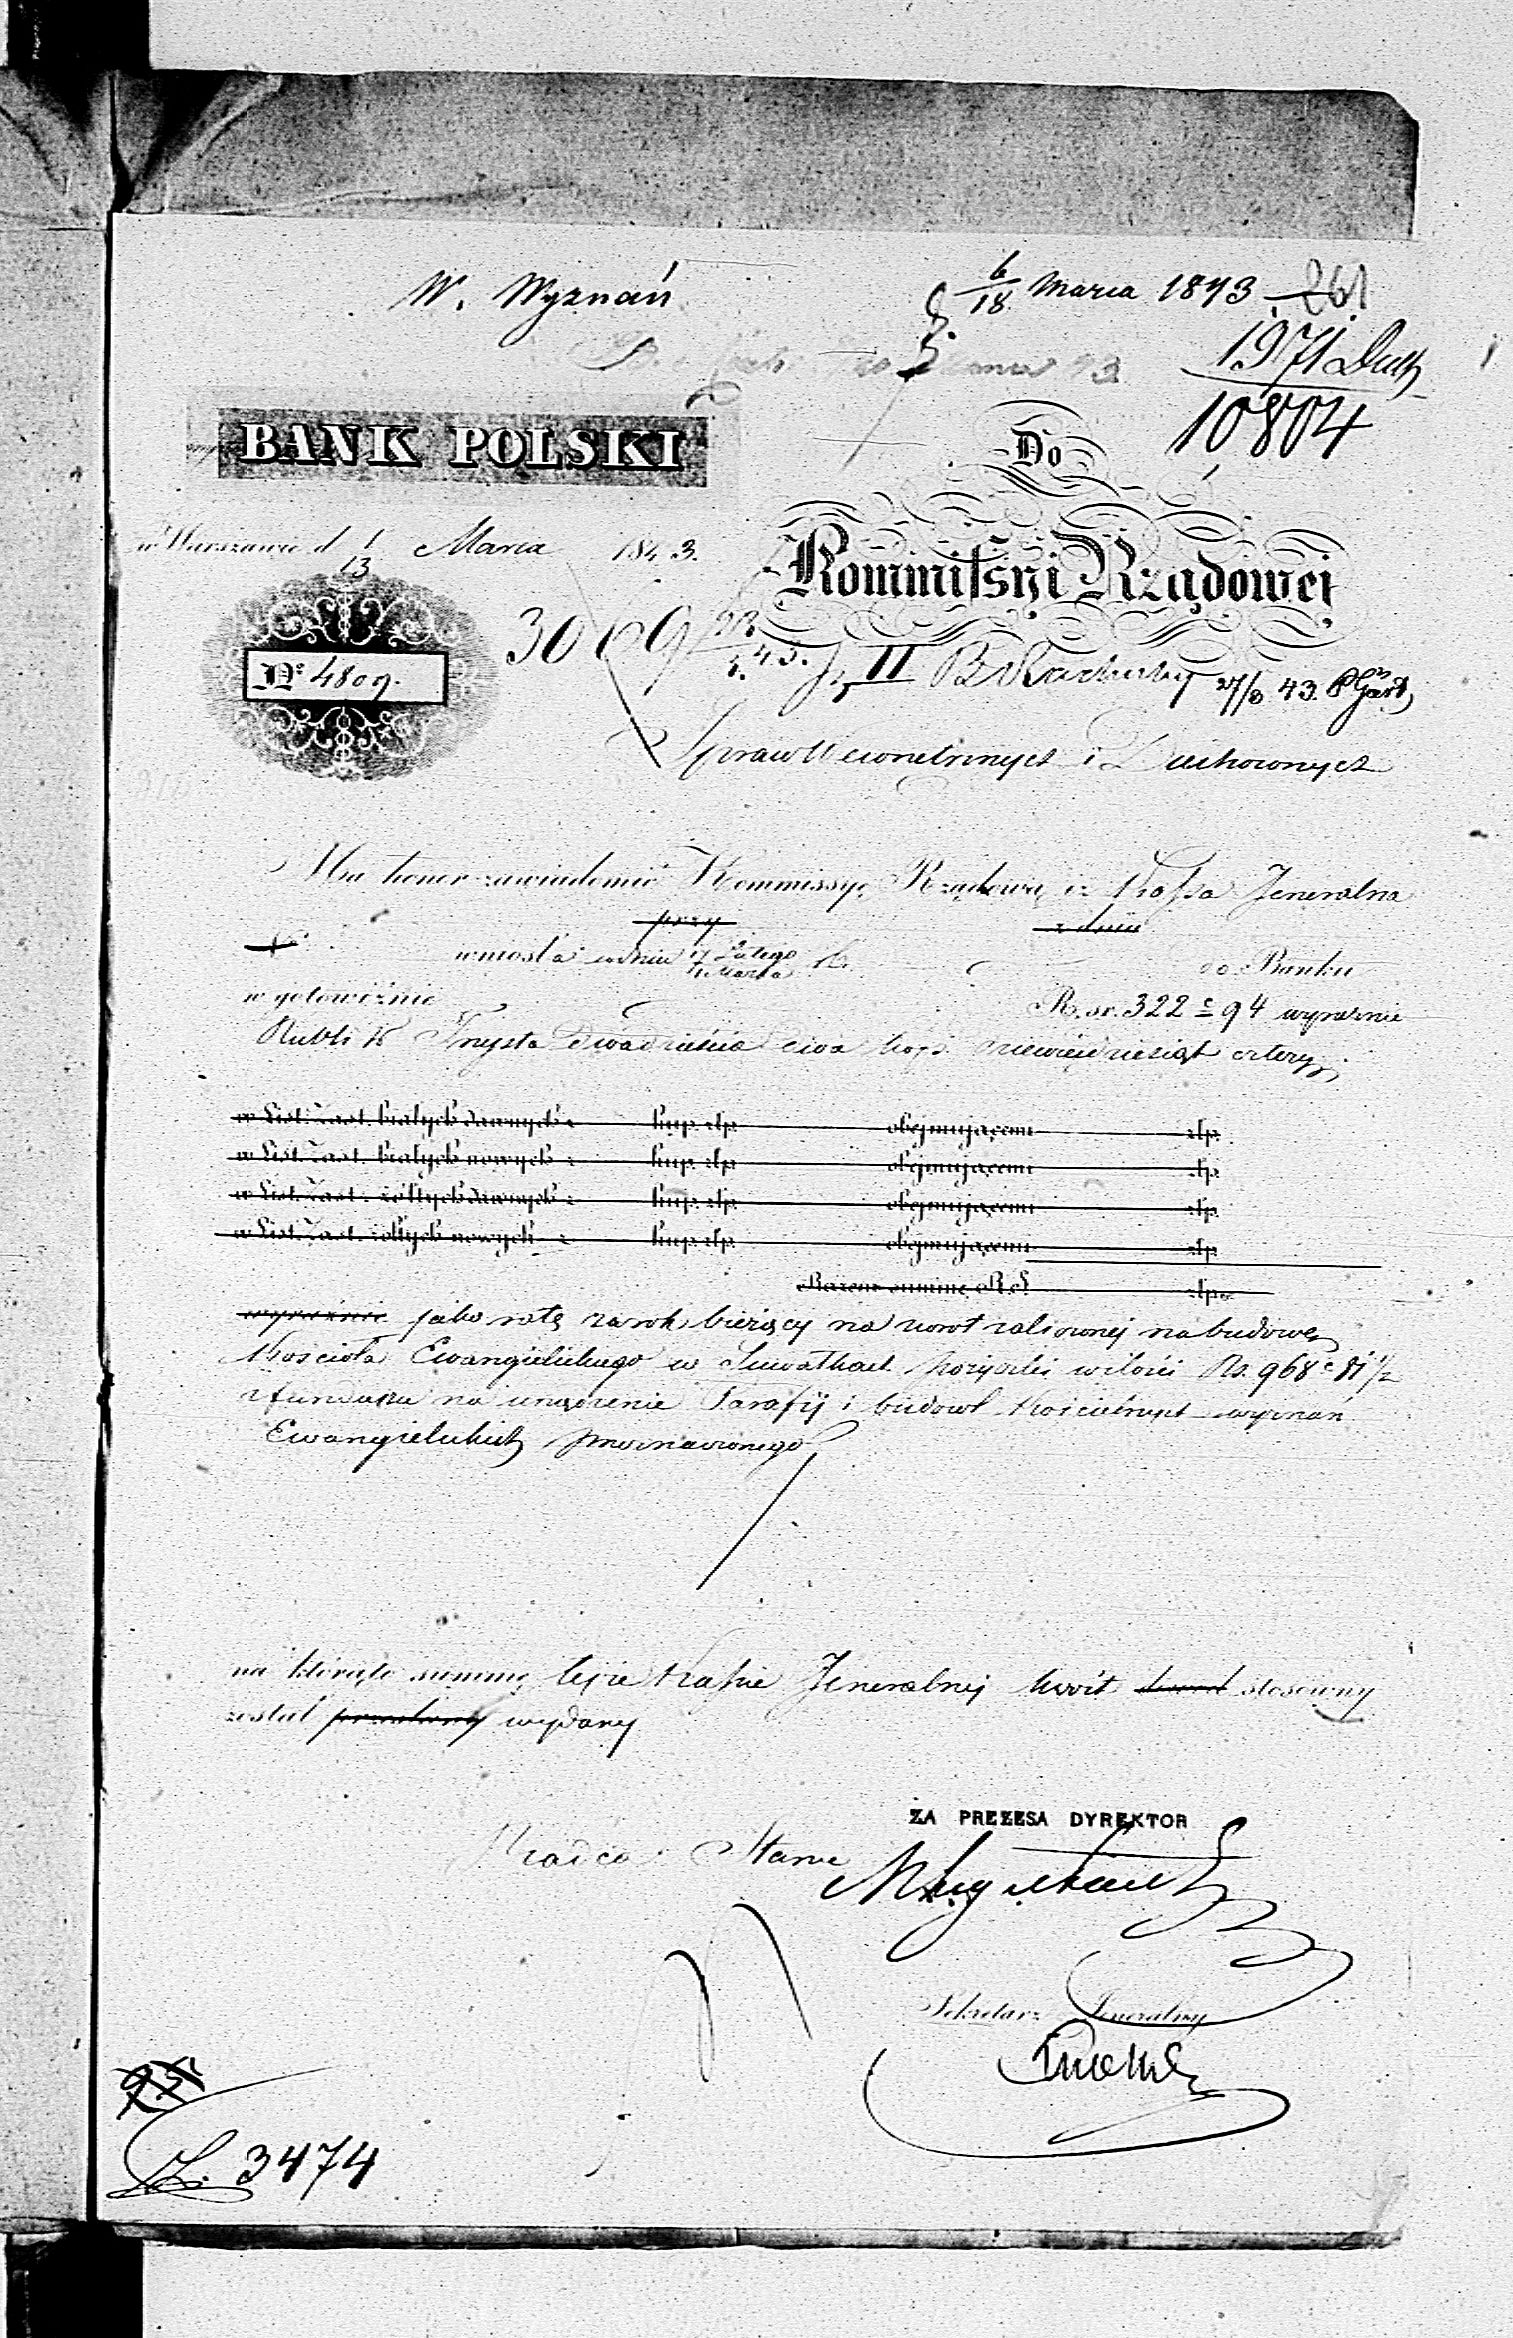 W. Wyznań
6/18 Marca 1843 261
1971 Duch
10804
BANK POLSKI
Do
w Warszawie d 1/13 Marca 1843.
Kommissyi Rządowej
No 4809.
3069
II 43.
Spraw Wewnętrznych i Duchownych
Ma honor zawiadomić Kommissyę Rządową, iż Kassa Jeneralna
przy z dnia
wniosła w dniu 17 Lutego / 1 Marca do Banku
w gotowiźnie R. sr. 322 c 94 wyraźnie
Rubli Sr Trzysta dwadzieścia dwa kop. dziewięćdziesiąt cztery
w List. Zast. białych dawnych z kup. złp. obejmującemi złp.
w List. Zast. białych nowych z kup. złp. obejmującemi złp.
w List. Zast. żółtych dawnych z kup. złp. obejmującemi złp.
w List. Zast. żółtych nowych z kup. złp. obejmującemi złp.
Razem summę R.S. złp.
wyraźnie jako ratę za rok bieżący na zwrot zaliczonej na budowę
Kościoła Ewangielickiego w Suwałkach pożyczki w ilości Rs. 968 c 81 1/2
z funduszu na urządzenie Parafij i budowl Kościelnych wyznań
Ewangielickich przeznaczonego
na którąto summę tejże Kassie Jeneralnej kwit dowód stosowny
został przesłany wydany
ZA PREZESA DYREKTOR
Radca Stanu
Sekretarz Jeneralny
3474